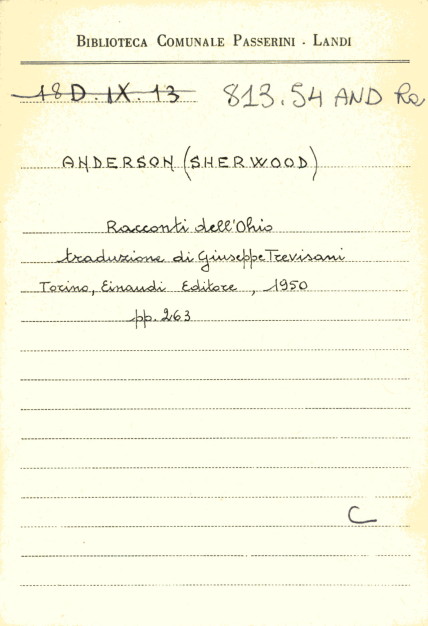 BIBLIOTECA COMUNALE PASSERINI - LANDI
18 D. IX. 13 813.54 AND Ra
ANDERSON (SHERWOOD)
Racconti dell'Ohio
traduzione di Giuseppe Trevisani
Torino, Einaudi Editore, 1950
pp. 263
C